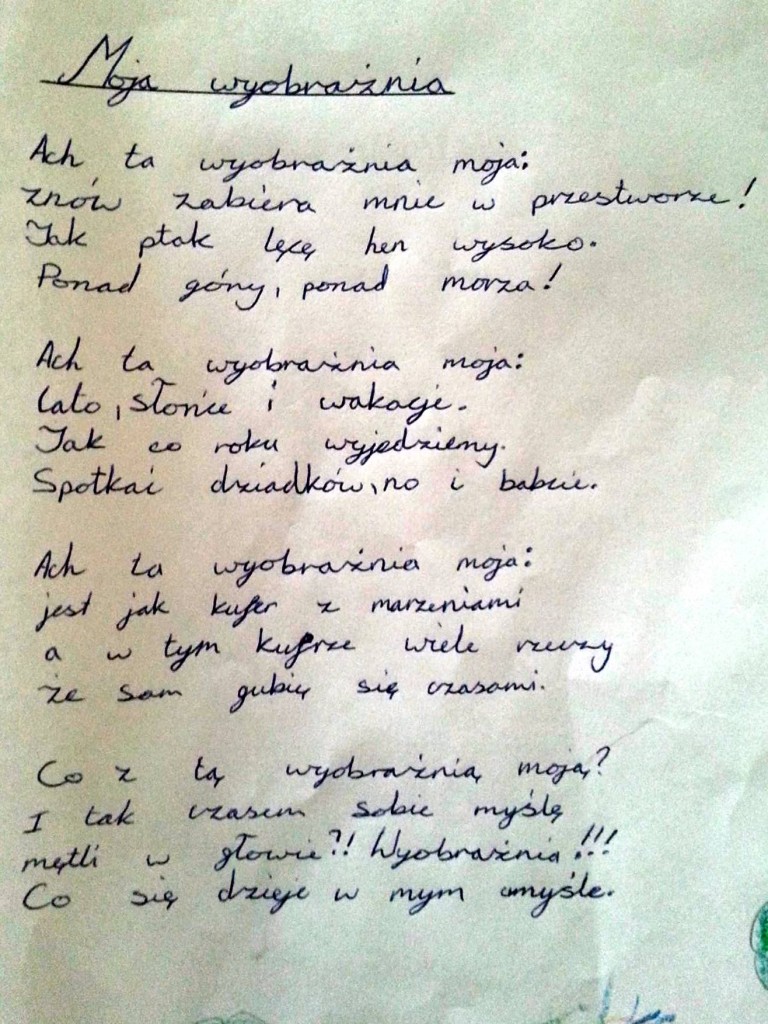 Moja wyobraźnia
Ach ta wyobraźnia moja:
znów zabiera mnie w przestworze!
Jak ptak lęcę hen wysoko.
Ponad góry, ponad morza!
Ach ta wyobraźnia moja:
lato, słońce i wakacje.
Jak co roku wyjedziemy.
Spotkać dziadków, no i babcie.
Ach ta wyobraźnia moja:
jest jak kufer z marzeniami
a w tym kufrze wiele rzeczy
że sam gubię się czasami.
Co z tą wyobraźnią moją?
I tak czasem sobie myślę
mętli w głowie?! Wyobraźnia!!!
Co się dzieje w mym umyśle.